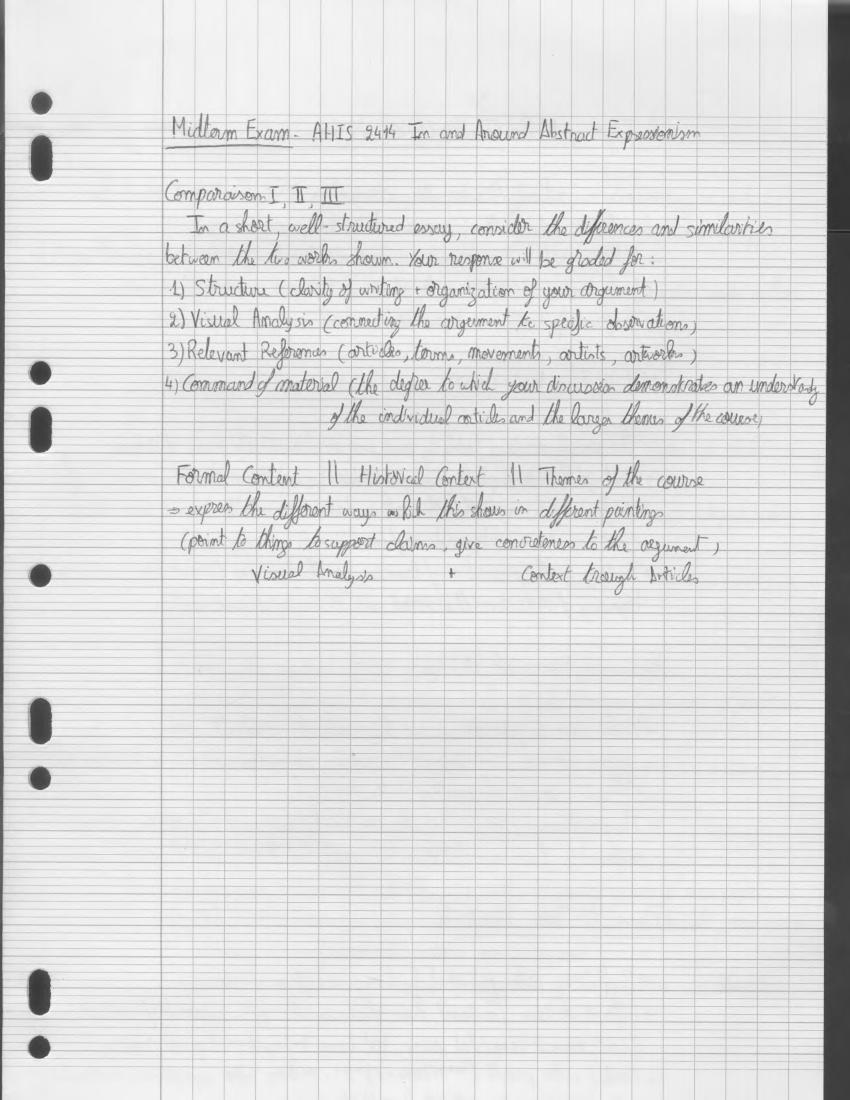 Midterm Exam - AHIS 2414 In and Around Abstract Expressionism
Comparaison I, II, III
In a short, well-structured essay, consider the differences and similarities
between the two works shown. Your response will be graded for :
1) Structure (clarity of writing + organization of your argument)
2) Visual Analysis (connecting the argument to specific observations)
3) Relevant References (articles, terms, movements, artists, artworks)
4) Command of material (the degree to which your discussion demonstrates an understandg
of the individual articles and the larger themes of the course)
Formal Content || Historical Context || Themes of the course
⇒ express the different ways this shows in different paintings
(point to things to support claims, give concreteness to the argument)
Visual Analysis + Context trough Articles